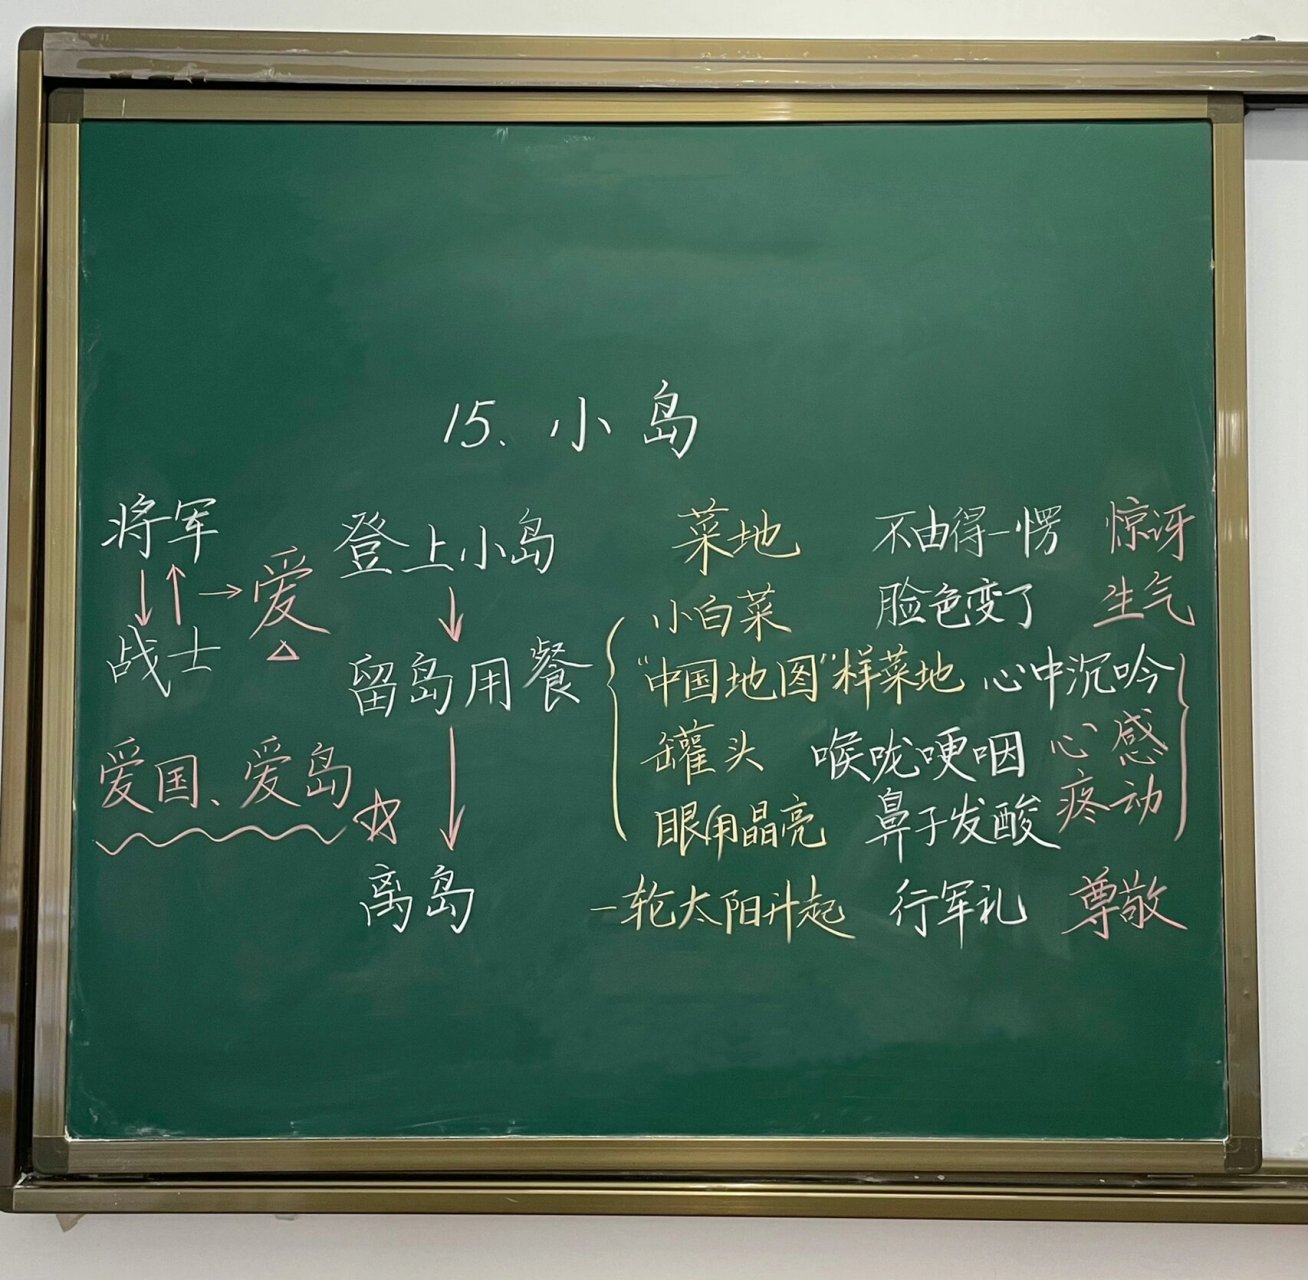 15. 小岛
将军 登上小岛 菜地 不由得一愣 惊讶
→爱
小白菜 脸色变了 生气
战士 留岛用餐 "中国地图"样菜地 心中沉吟
罐头 喉咙哽咽 心疼 感动
爱国、爱岛
眼角晶亮 鼻子发酸
离岛 一轮太阳升起 行军礼 尊敬